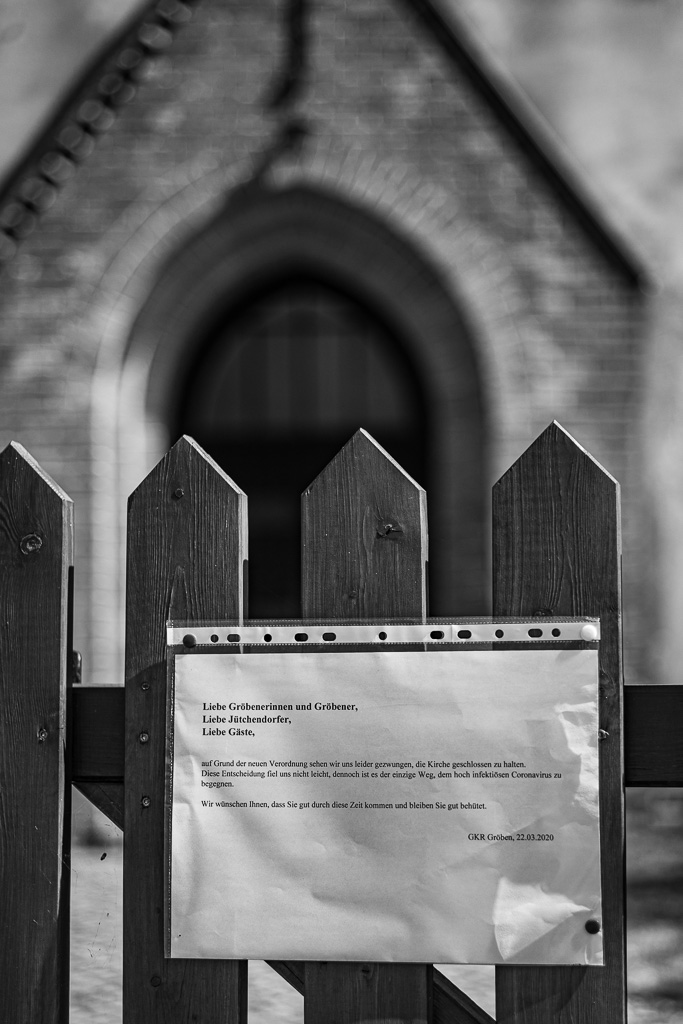 Liebe Gröbenerinnen und Gröbener,
Liebe Jütchendorfer,
Liebe Gäste,
auf Grund der neuen Verordnung sehen wir uns leider gezwungen, die Kirche geschlossen zu halten.
Diese Entscheidung fiel uns nicht leicht, dennoch ist es der einzige Weg, dem hoch infektiösen Coronavirus zu
begegnen.
Wir wünschen Ihnen, dass Sie gut durch diese Zeit kommen und bleiben Sie gut behütet.
GKR Gröben, 22.03.2020